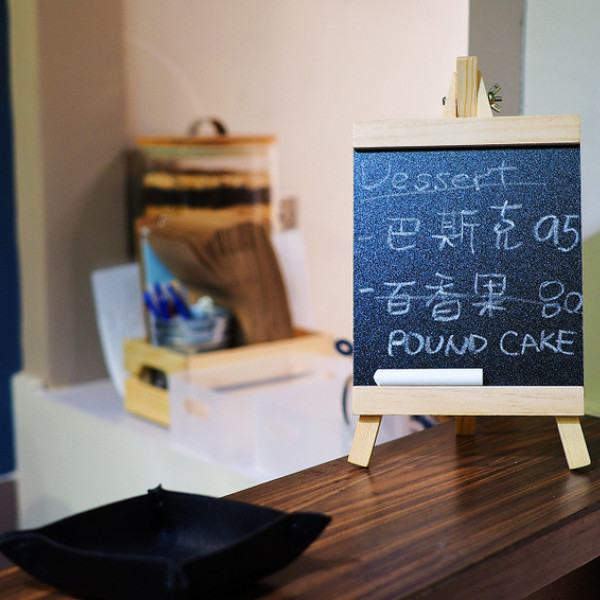 Dessert
- 巴斯克 95
- 百香果 80
POUND CAKE